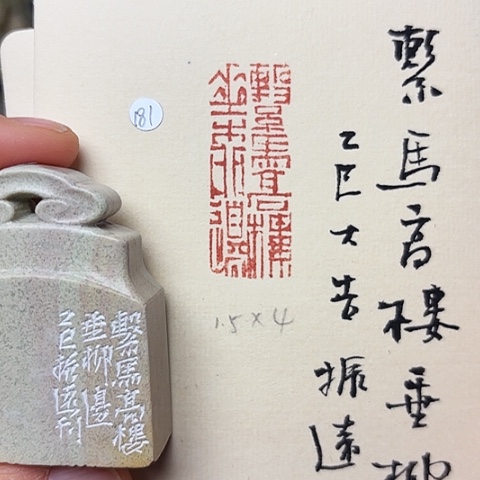 繫馬高樓垂柳
乙巳大吉振遠
繫馬高樓
垂柳邊
181
1.5×4
繫馬高樓
垂柳邊
乙巳振遠刊